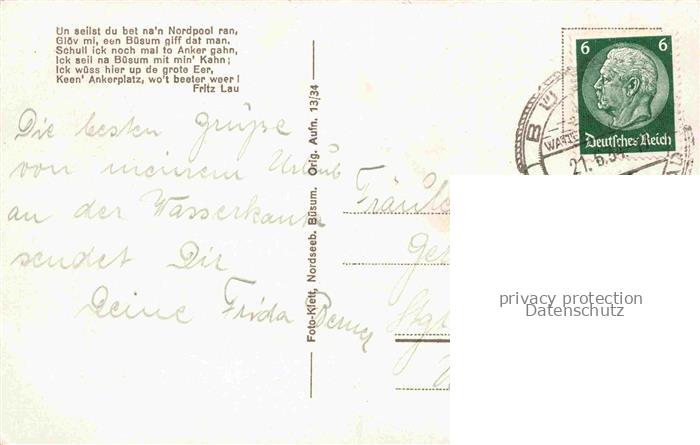 Un seilst du bet na'n Nordpool ran,
Glöv mi, een Büsum giff dat man.
Schull ick noch mal to Anker gahn,
Ick seil na Büsum mit min' Kahn;
Ick wüss hier up de grote Eer,
Keen' Ankerplatz, wo't beeter weer!
Fritz Lau
Die besten Grüße
von meinem Urlaub
an der Wasserkante
sendet Dir
Deine Frida
Foto-Klett, Nordseeb. Büsum. Orig. Aufn. 13/34
6 6
Deutsches Reich
B Ü
21. 6.
Fräulein
privacy protection
Datenschutz